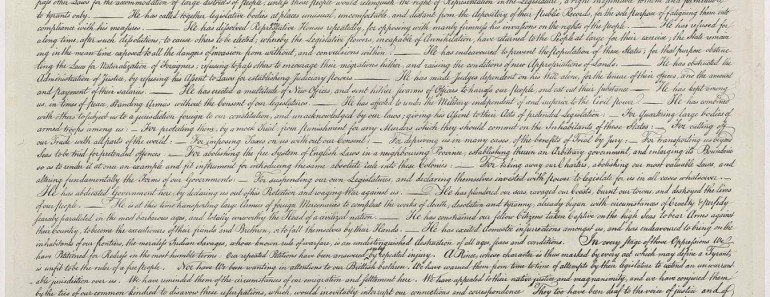 pass other Laws for the accommodation of large districts of people, unless those people would relinquish the right of Representation in the Legislature, a right inestimable to them and formidable
to tyrants only. — He has called together legislative bodies at places unusual, uncomfortable, and distant from the depository of their public Records, for the sole purpose of fatiguing them into
compliance with his measures. — He has dissolved Representative Houses repeatedly, for opposing with manly firmness his invasions on the rights of the people. — He has refused for a
long time, after such dissolutions, to cause others to be elected; whereby the Legislative powers, incapable of Annihilation, have returned to the People at large for their exercise; the State remain=
ing in the mean time exposed to all the dangers of invasion from without, and convulsions within. — He has endeavoured to prevent the population of these States; for that purpose obstruc=
ting the Laws for Naturalization of Foreigners; refusing to pass others to encourage their migrations hither, and raising the conditions of new Appropriations of Lands. — He has obstructed the
Administration of Justice, by refusing his Assent to Laws for establishing Judiciary powers. — He has made Judges dependent on his Will alone, for the tenure of their offices, and the amount
and payment of their salaries. — He has erected a multitude of New Offices, and sent hither swarms of Officers to harrass our people, and eat out their substance. — He has kept among
us, in times of peace, Standing Armies without the Consent of our legislatures. — He has affected to render the Military independent of and superior to the Civil power. — He has combined
with others to subject us to a jurisdiction foreign to our constitution, and unacknowledged by our laws; giving his Assent to their Acts of pretended Legislation: — For Quartering large bodies of
armed troops among us: — For protecting them, by a mock Trial, from punishment for any Murders which they should commit on the Inhabitants of these States: — For cutting off
our Trade with all parts of the world: — For imposing Taxes on us without our Consent: — For depriving us in many cases, of the benefits of Trial by Jury: — For transporting us beyond
Seas to be tried for pretended offences — For abolishing the free System of English Laws in a neighbouring Province, establishing therein an Arbitrary government, and enlarging its Boundaries
so as to render it at once an example and fit instrument for introducing the same absolute rule into these Colonies: — For taking away our Charters, abolishing our most valuable Laws, and
altering fundamentally the Forms of our Governments: — For suspending our own Legislatures, and declaring themselves invested with power to legislate for us in all cases whatsoever. —
He has abdicated Government here, by declaring us out of his Protection and waging War against us. — He has plundered our seas, ravaged our Coasts, burnt our towns, and destroyed the lives
of our people. — He is at this time transporting large Armies of foreign Mercenaries to compleat the works of death, desolation and tyranny, already begun with circumstances of Cruelty & perfidy
scarcely paralleled in the most barbarous ages, and totally unworthy the Head of a civilized nation. — He has constrained our fellow Citizens taken Captive on the high Seas to bear Arms against
their Country, to become the executioners of their friends and Brethren, or to fall themselves by their Hands. — He has excited domestic insurrections amongst us, and has endeavoured to bring on the
inhabitants of our frontiers, the merciless Indian Savages, whose known rule of warfare, is an undistinguished destruction of all ages, sexes and conditions. In every stage of these Oppressions We
have Petitioned for Redress in the most humble terms: Our repeated Petitions have been answered only by repeated injury. A Prince, whose character is thus marked by every act which may define a Tyrant,
is unfit to be the ruler of a free people. Nor have We been wanting in attentions to our Brittish brethren. We have warned them from time to time of attempts by their legislature to extend an unwarrant
able jurisdiction over us. We have reminded them of the circumstances of our emigration and settlement here. We have appealed to their native justice and magnanimity, and we have conjured them
by the ties of our common kindred to disavow these usurpations, which, would inevitably interrupt our connections and correspondence. They too have been deaf to the voice of justice and of